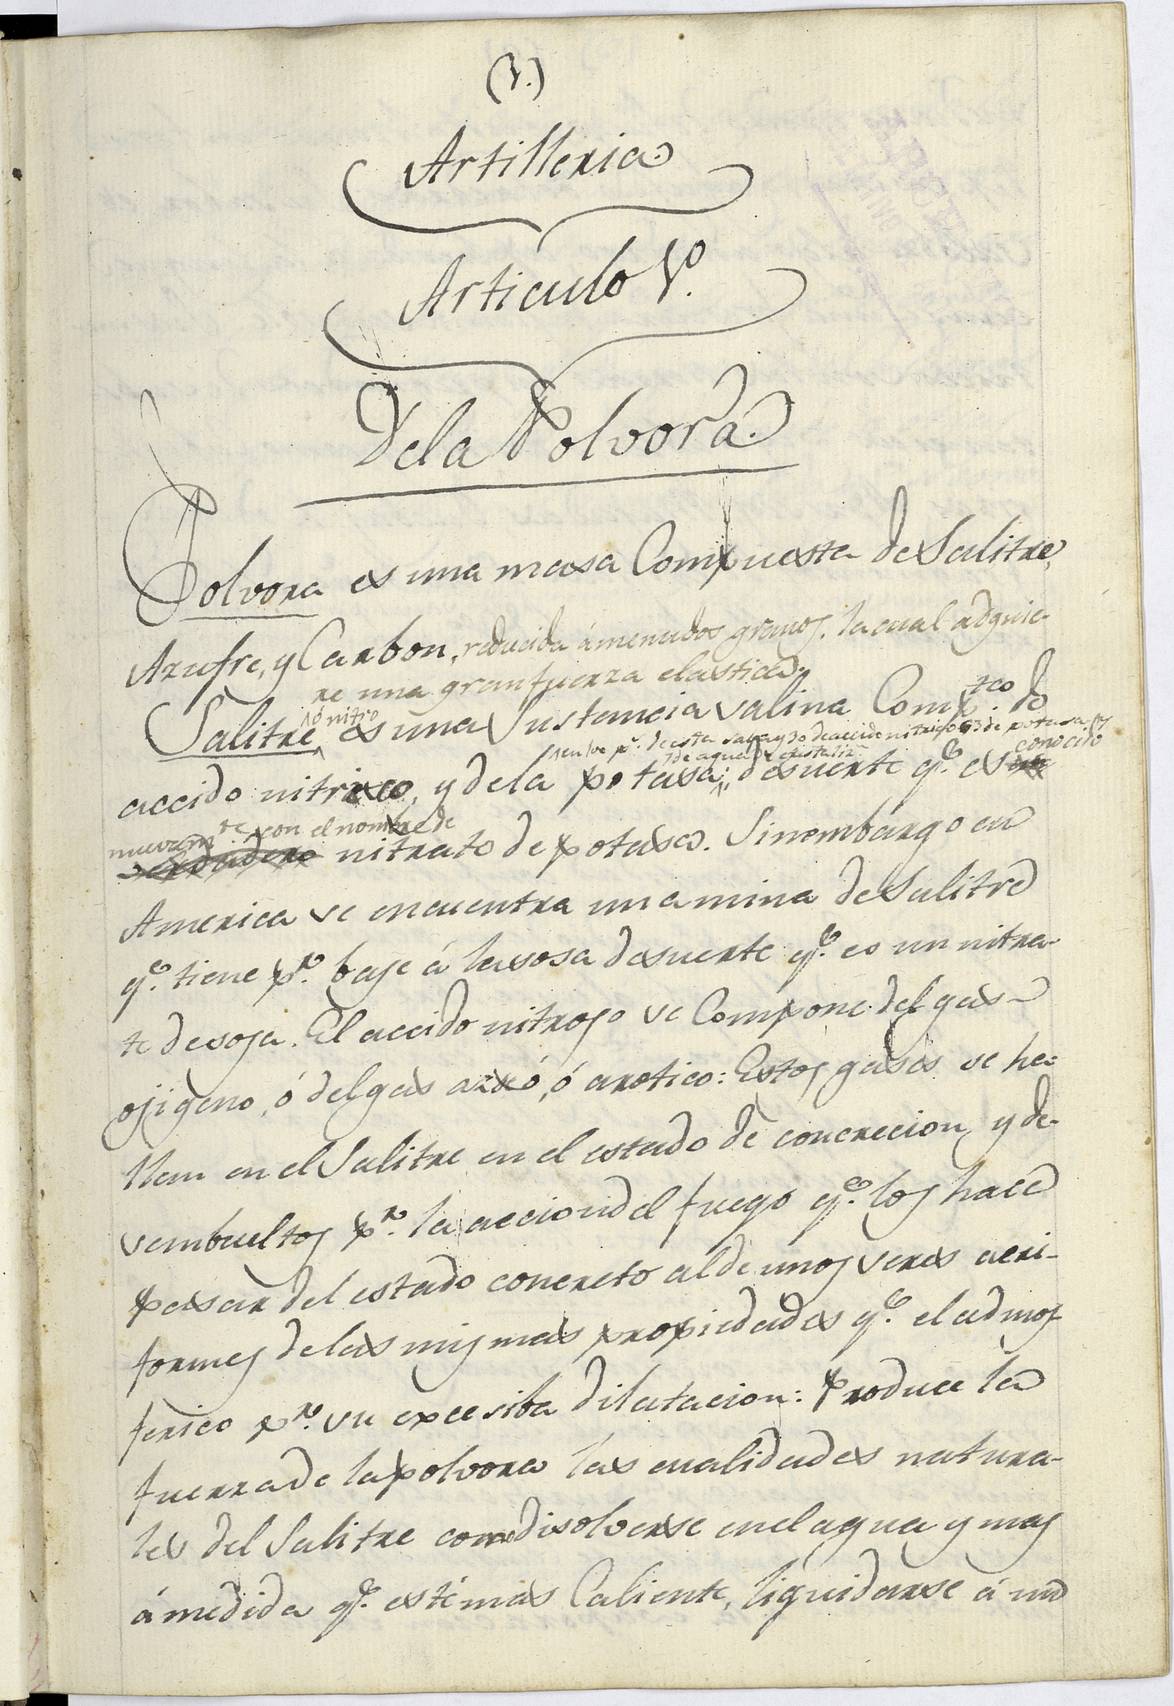 (1.)
Artilleria.
Articulo 1º.
De la Polvora.
Polvora es una masa Compuesta de Salitre,
Azufre, y Carbon, reducida á menudos granos, la cual adquie-
re una gran fuerza elastica.
Salitre ó nitro es una Sustancia salina Comp.ta de
en 100 p.s de esta sal ay 30 de accido nitrico 63 de potasa y
7 de agua de cristaliz.n
accido nitrico, y de la potasa; de suerte q.e es conocido
nuevam.te con el nombre de
verdadero nitrato de potasa. Sin embargo en
America se encuentra una mina de Salitre
q.e tiene p.r base á la sosa de suerte q.e es un nitra-
to de sosa. El accido nitroso se Compone del gas
ojigeno, ó del gas azoó, ó azotico: Estos gases se ha-
llan en el Salitre en el estado de concrecion, y de-
sembueltos p.r la accion del fuego q.e los hace
pasar del estado concreto al de unos seres aeri-
formes de las mismas propiedades q.e el admos-
ferico p.r su excesiba dilatacion: Produce la
fuerza de la polvora las cualidades natura-
les del Salitre como disolverse en el agua y mas
á medida q.e esté mas Caliente, liquidarse á un